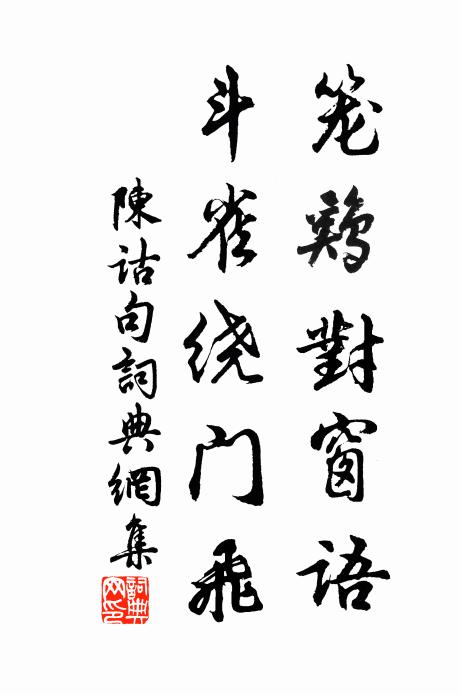 笼鷄對窗语
斗雀绕门飛
陳诂句詞典網集
詞典网印